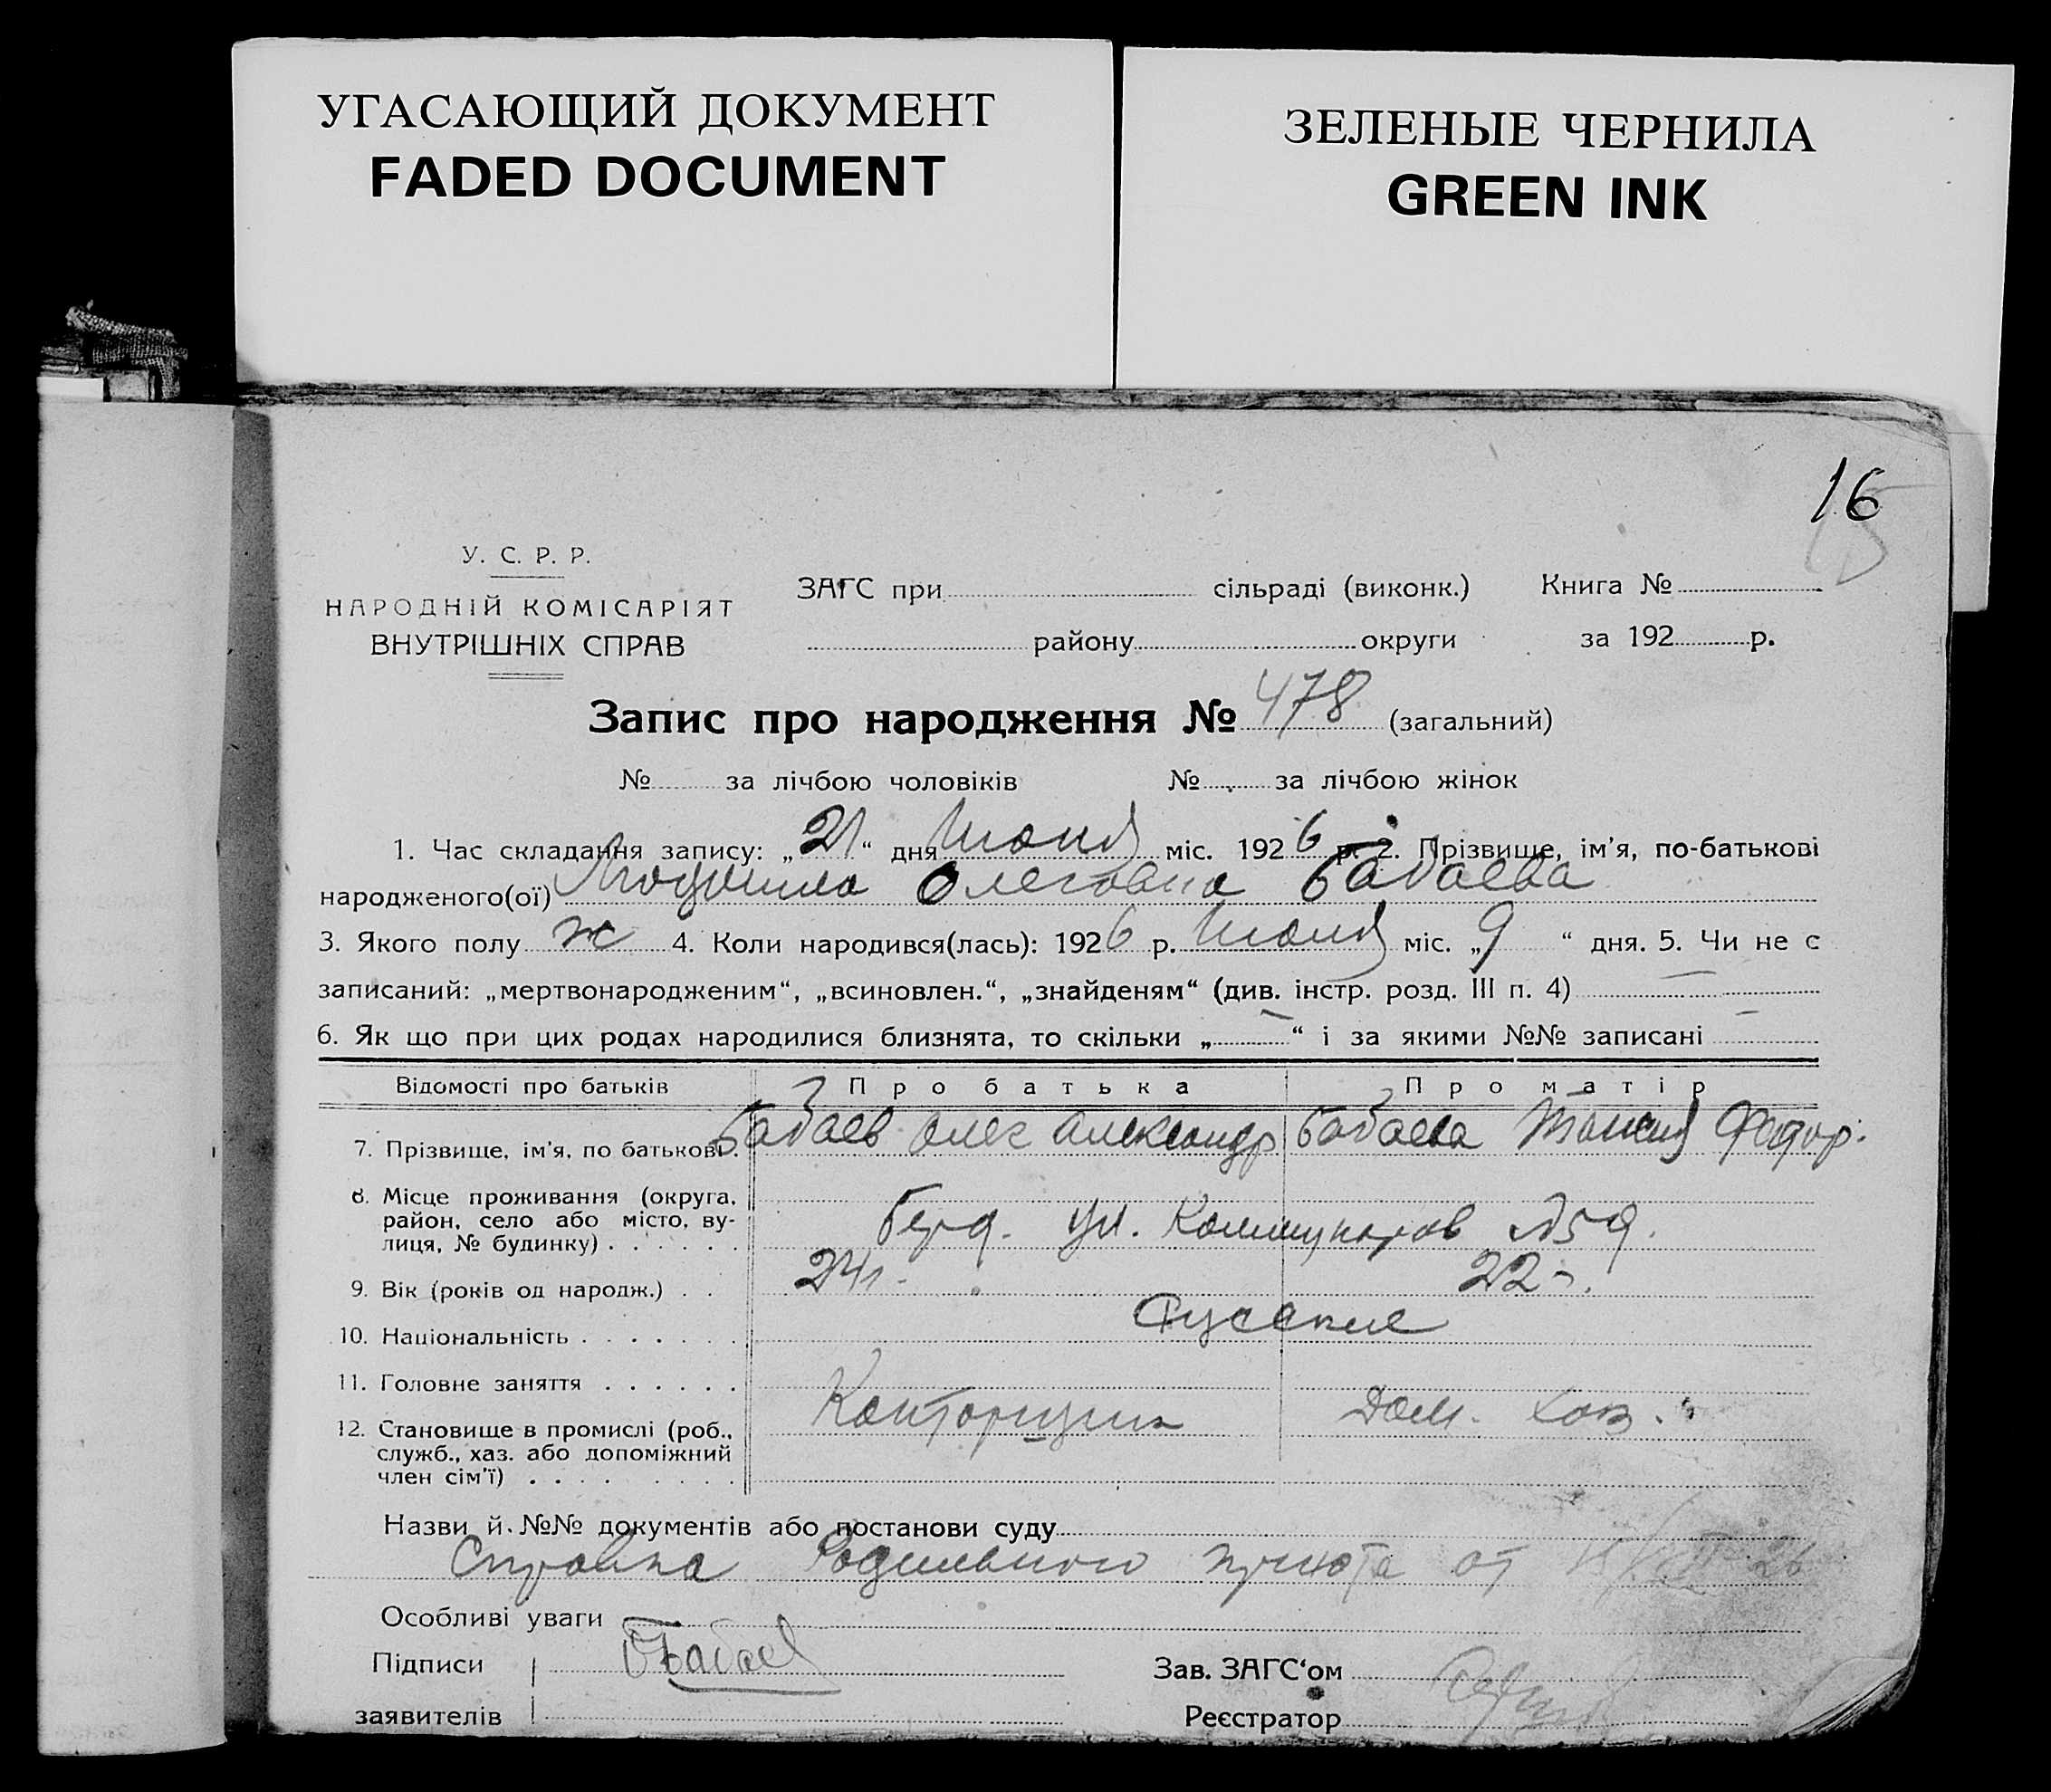 УГАСАЮЩИЙ ДОКУМЕНТ
FADED DOCUMENT
ЗЕЛЕНЫЕ ЧЕРНИЛА
GREEN INK
16
15
У. С. Р. Р.
НАРОДНІЙ КОМІСАРІЯТ
ВНУТРІШНІХ СПРАВ
ЗАГС при сільраді (виконк.) Книга №
району округи за 192 р.
Запис про народження № 478 (загальний)
№ за лічбою чоловіків № за лічбою жінок
1. Час складання запису: „21“ дня Июня міс. 1926 р. 2. Прізвище, ім'я, по-батькові
народженого(ої) Людмила Олеговна Бабаева
3. Якого полу ж 4. Коли народився(лась): 1926 р. Июня міс. „9“ дня. 5. Чи не є
записаний: „мертвонародженим“, „всиновлен.“, „знайденям“ (див. інстр. розд. III п. 4) —
6. Як що при цих родах народилися близнята, то скільки „—“ і за якими №№ записані —
Відомості про батьків Про батька Про матір
7. Прізвище, ім'я, по батькові . Бабаев Олег Александр Бабаева Таисия Федор.
8. Місце проживання (округа, район, село або місто, ву-
лиця, № будинку) . . . . . . Берд. ул. Коммунаров №59.
9. Вік (років од народж.) . . 24л. 22
10. Національність . . . . . . . Русские
11. Головне заняття . . . . . .
Конторщик Дом. хоз.
12. Становище в промислі (роб.,
служб., хаз. або допоміжний
член сім'ї) . . . .
Назви й №№ документів або постанови суду
Справка Родильного пункта от 26
Особливі уваги
Підписи ОБабаев Зав. ЗАГС‘ом
заявителів Реєстратор